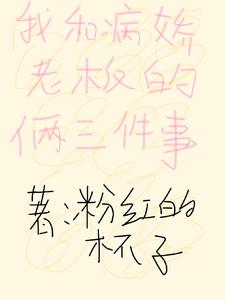 我和病娇
老板的
俩三件事
著:粉红的
杯子